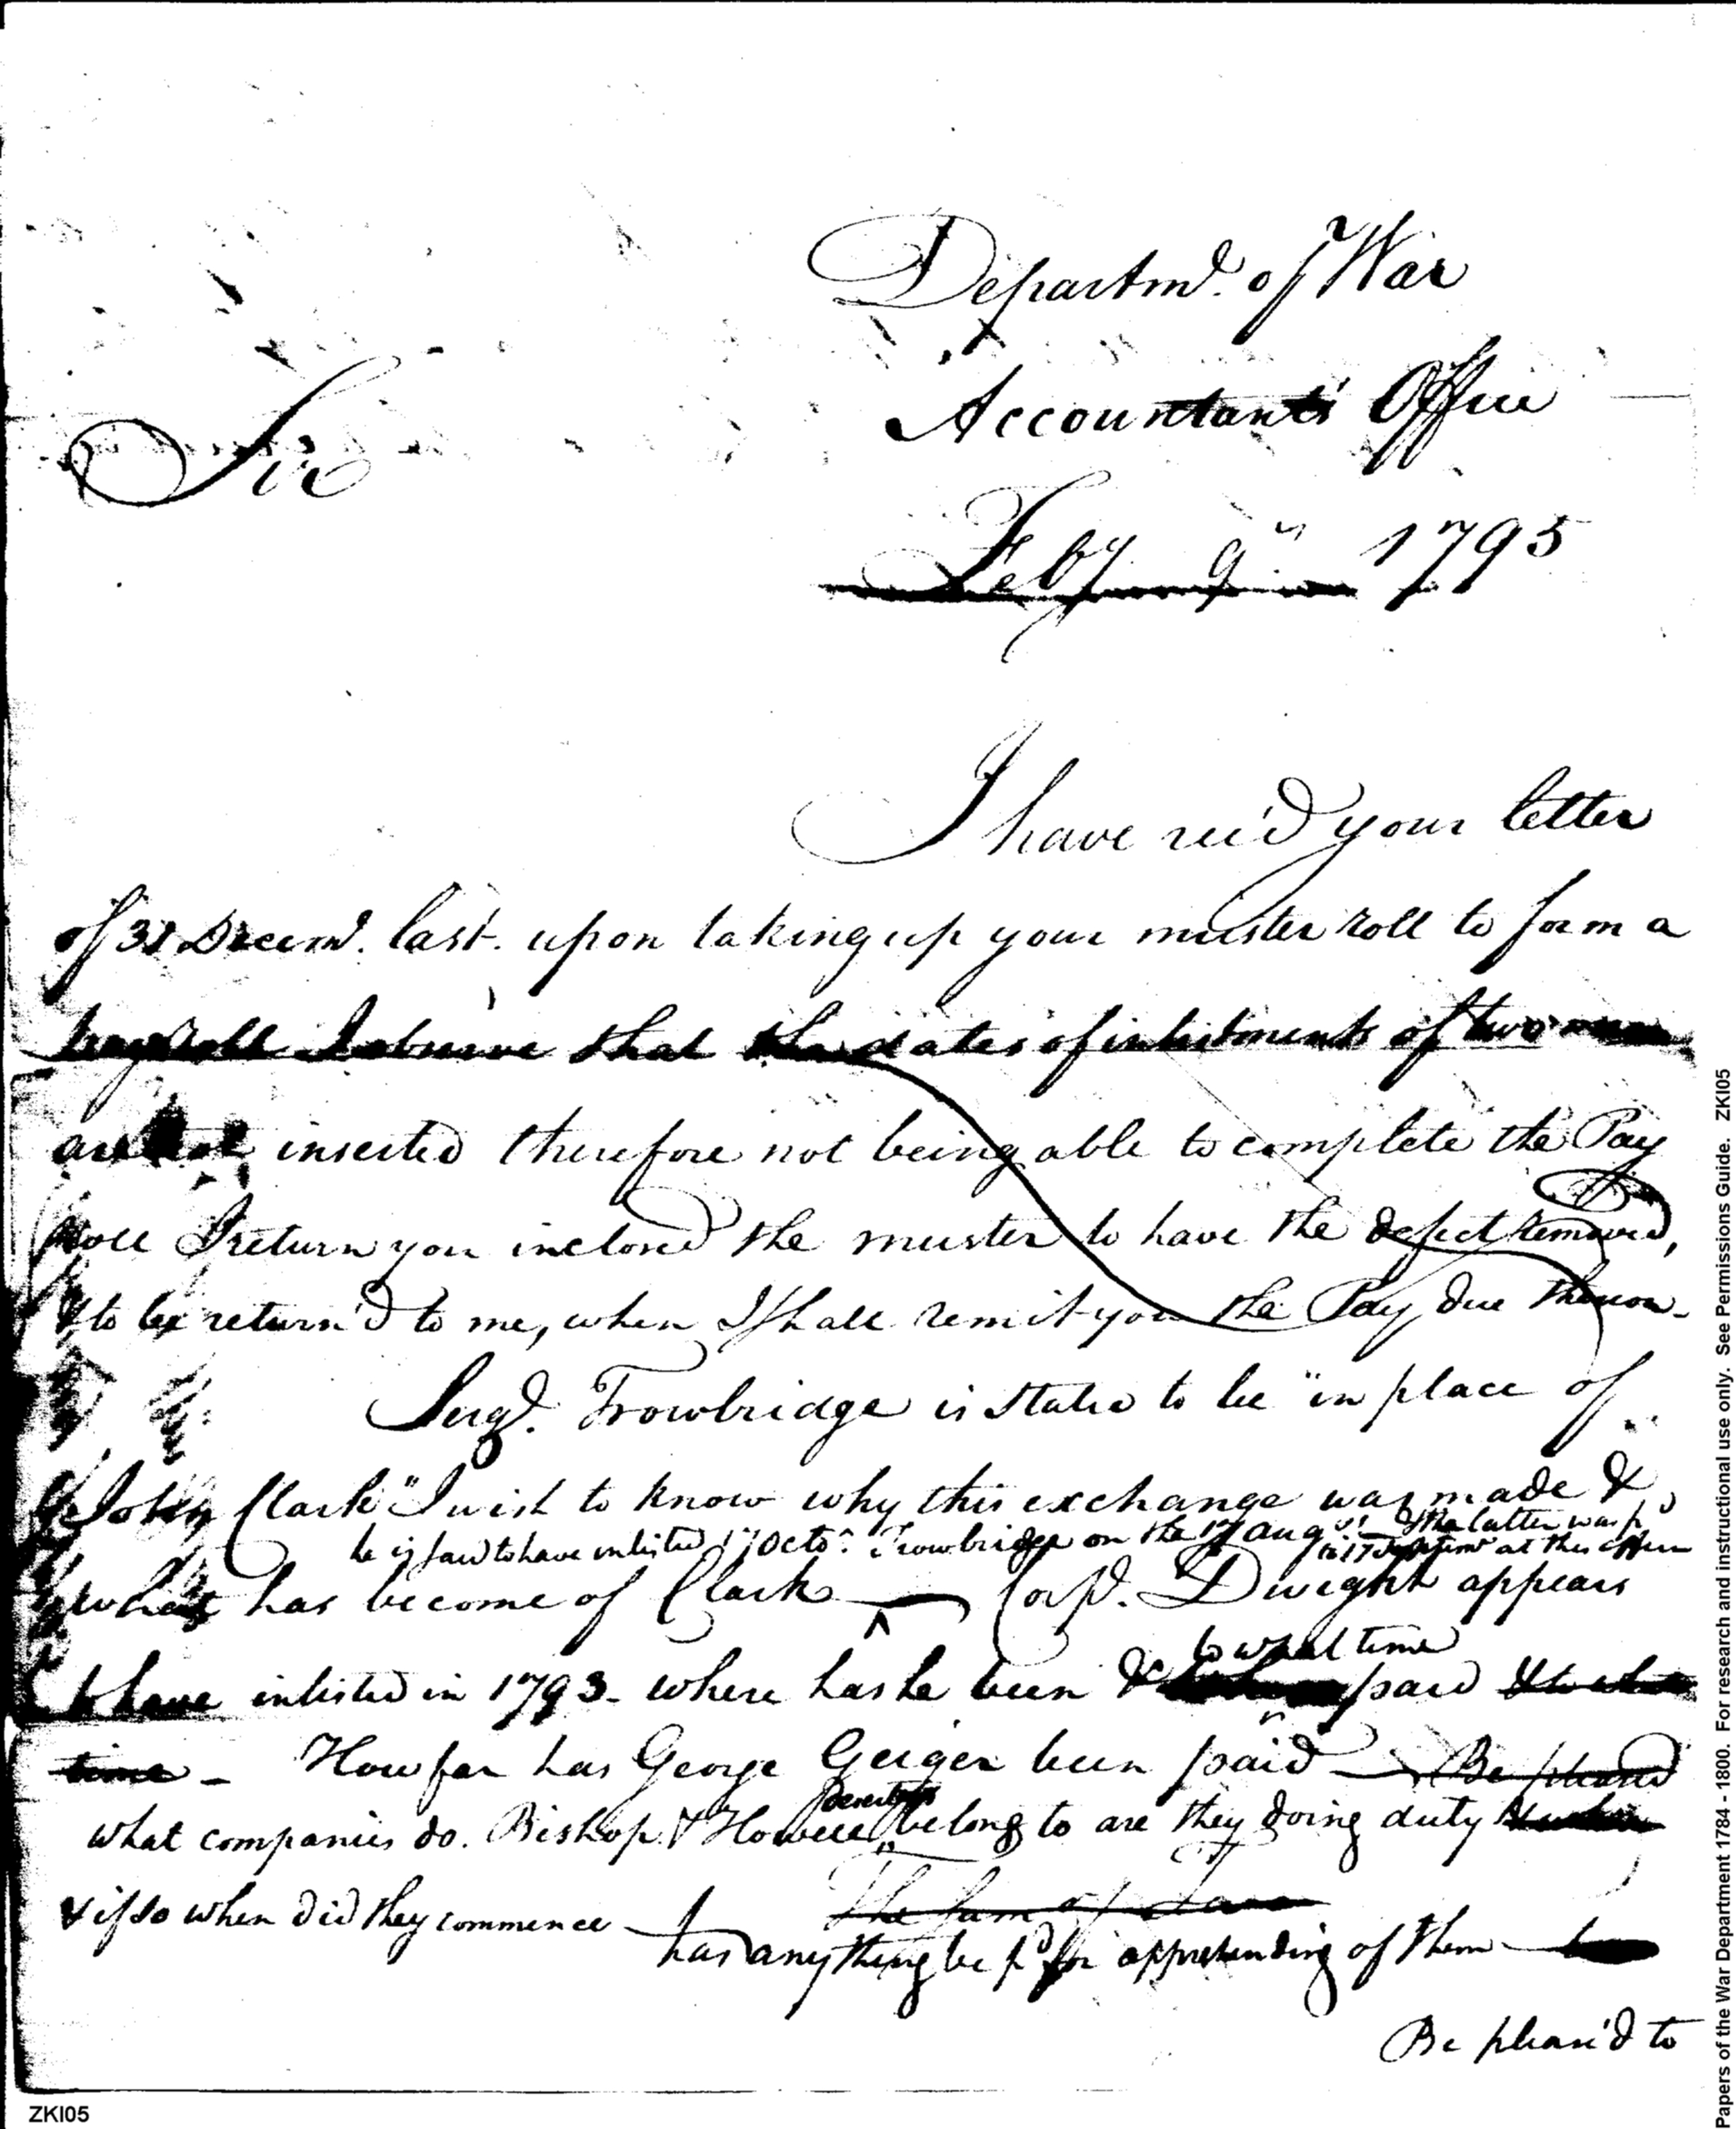 Departmt. of War
Accountants Office
Sir
Feby 9" 1795
I have rec'd your letter
of 31 Decemr. last. upon taking up your muster roll to form a
pay roll I observe that the dates of inlistments of two men
are not inserted therefore not being able to complete the Pay
Roll I return you inclosed the muster to have the defect removed,
& to be return'd to me, when I shall remit you the Pay due thereon-
Sergt. Trowbridge is stated to be "in place of
John Clark" I wish to know why this exchange was made &
he is said to have inlisted 1" Octor. Trowbridge on the 17 Augt. & the latter was pd
to 17 at this office
what has become of Clark — Corpl. Dwight appears
to what time
to have inlisted in 1793- where has he been & paid & to what
time - How far has George Geiger been paid — Be pleased
Deserters
what companies do. Bishop & Howell belong to are they doing duty
& if so when did they commence —
The sum of
has anything be pd for apprehending of them —
Be pleas'd to
ZKI05
Papers of the War Department 1784 - 1800. For research and instructional use only. See Permissions Guide. ZKI05